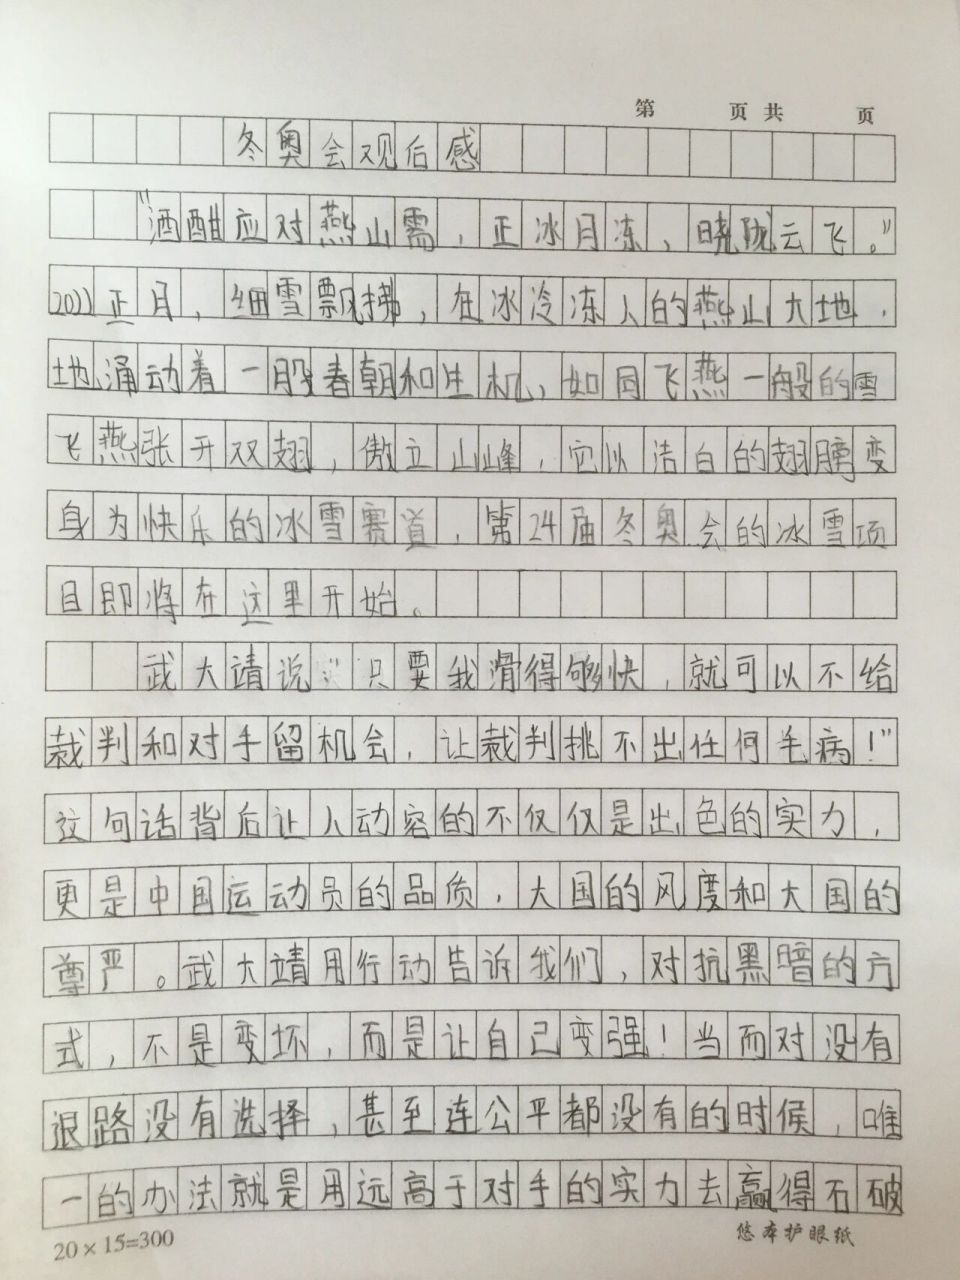 第 页 共 页
冬奥会观后感
"酒酣应对燕山雪，正冰月冻，晓陇云飞。"
2022正月，细雪飘拂，在冰冷冻人的燕山大地，
地涌动着一股春朝和生机，如同飞燕一般的雪
飞燕张开双翅，傲立山峰，它以洁白的翅膀变
身为快乐的冰雪赛道，第24届冬奥会的冰雪项
目即将在这里开始。
武大靖说："只要我滑得够快，就可以不给
裁判和对手留机会，让裁判挑不出任何毛病！"
这句话背后让人动容的不仅仅是出色的实力，
更是中国运动员的品质，大国的风度和大国的
尊严。武大靖用行动告诉我们，对抗黑暗的方
式，不是变坏，而是让自己变强！当面对没有
退路没有选择，甚至连公平都没有的时候，唯
一的办法就是用远高于对手的实力去赢得石破
20×15=300
悠本护眼纸